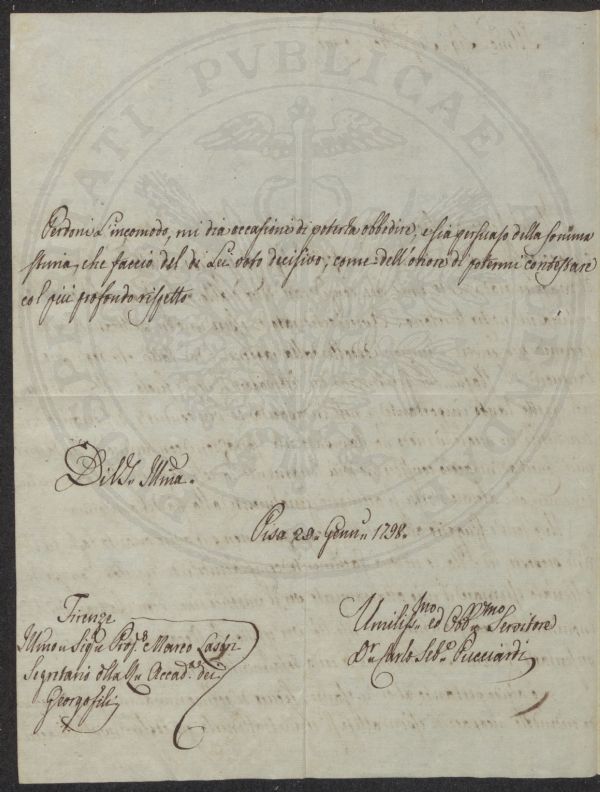 PROSPERITATI PVBLICAE AVGENDAE
Perdoni L'incomodo, mi dia occasione di poterla obbedire, e sia persuaso della somma
stima, che faccio del di Lei voto decisivo; come dell'onore di potermi contestare
col più profondo rispetto
Di V.S. Illma.
Pisa 29. Genn. 1798.
Firenze
Illmo Sigr. Profe. Marco Lastri
Segretario della Rl. Accad. dei
Georgofili
Umiliss.mo ed Obb.mo Servitore
Dr. Carlo Seb. Pucciardi